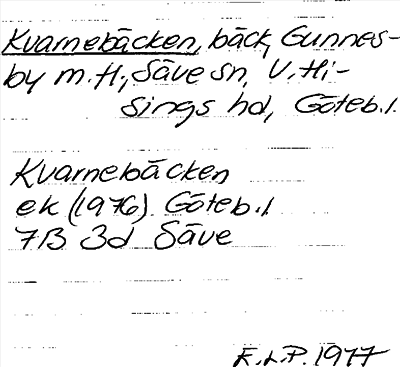 Kvarnebäcken, bäck, Gunnes-
by m.fl., Säve sn, V. Hi-
sings hd, Göteb.l.
Kvarnebäcken
ek (1976) Göteb.l
7B 3d Säve
E.L.P. 1977